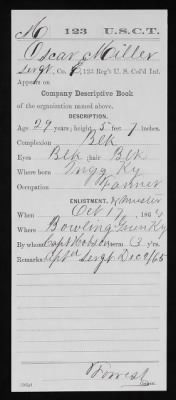 M 123 U.S.C.T.
Oscar Miller
Sergt, Co. E, 123 Reg't U. S. Col'd Inf.
Appears on
Company Descriptive Book
of the organization named above.
DESCRIPTION.
Age 29 years; height 5 feet 7 inches.
Complexion Blk
Eyes Blk; hair Blk
Where born Trigg Ky
Occupation Farmer
ENLISTMENT. & Muster
When Oct 17, 1864
Where Bowling Green Ky
By whom Capt Hobson; term 3 y'rs.
Remarks: aptd Sergt Dec 9/65
Forrest
Copyist.